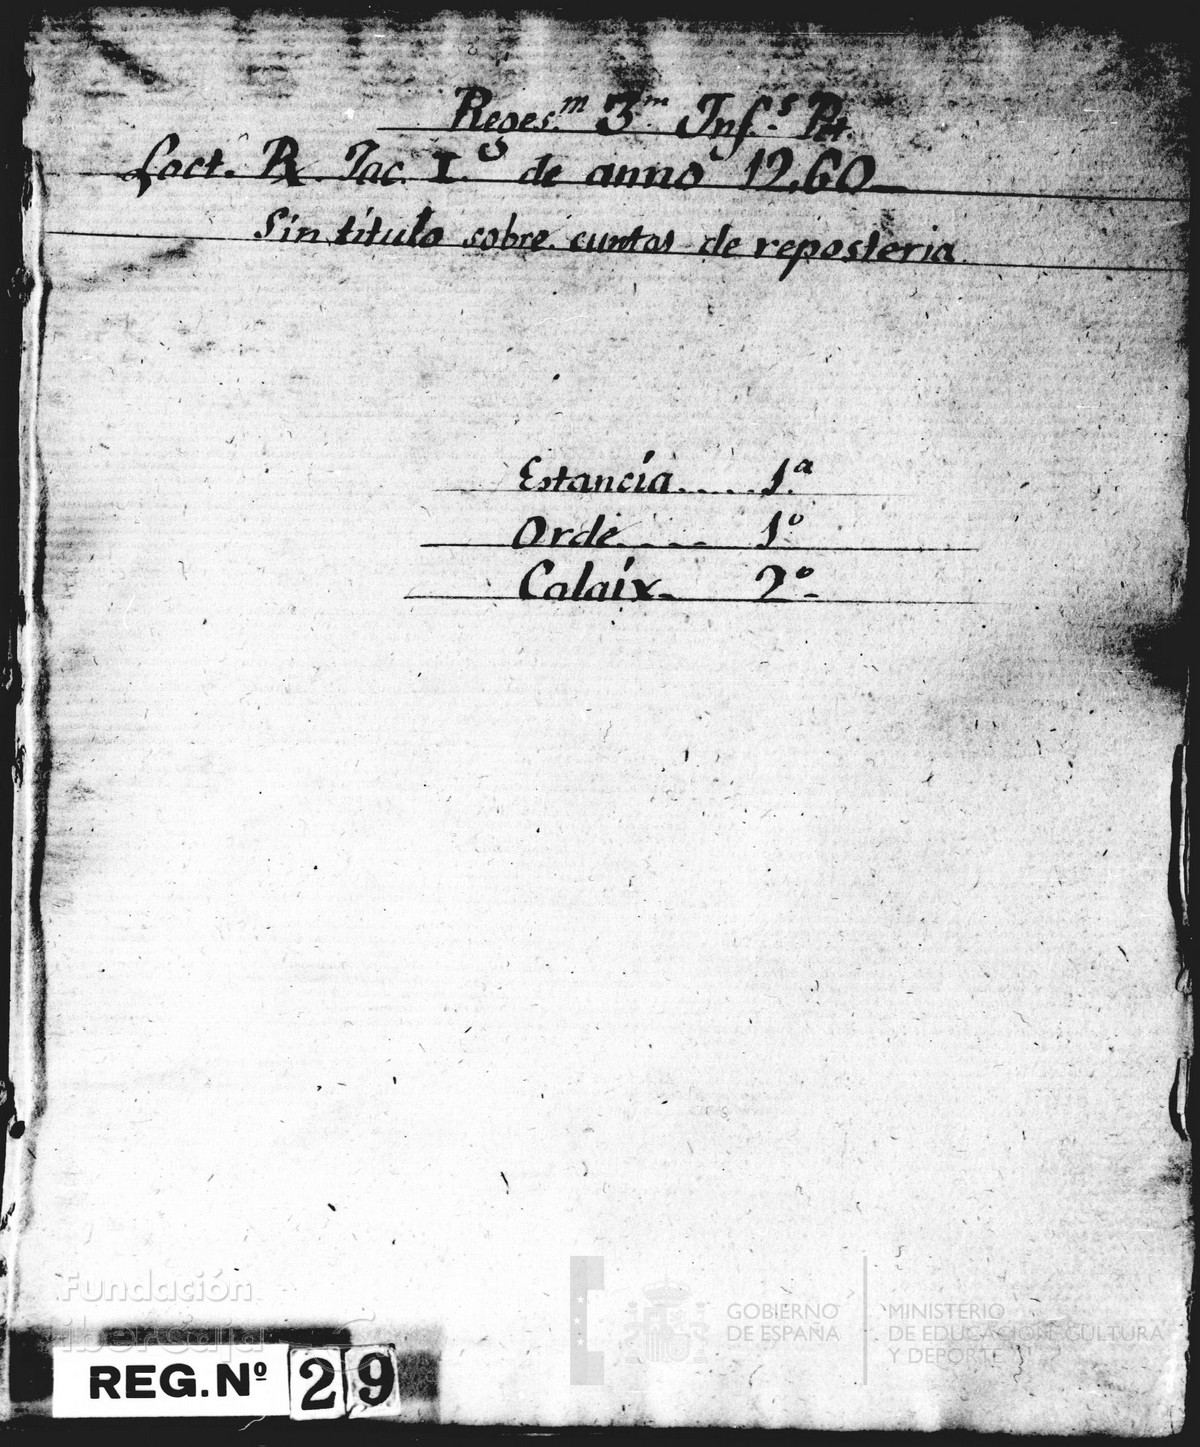 Reges.m 3.m Inf.s Pet.
Loct. Rx. Jac. I.º de anno 1260
Sin título sobre cuntas de reposteria
Estancía..... 1.ª
Orde..... 1º
Calaíx.. 2º.
Fundación
iberCaja
GOBIERNO
DE ESPAÑA
MINISTERIO
DE EDUCACIÓN, CULTURA
Y DEPORTE
REG.Nº 29